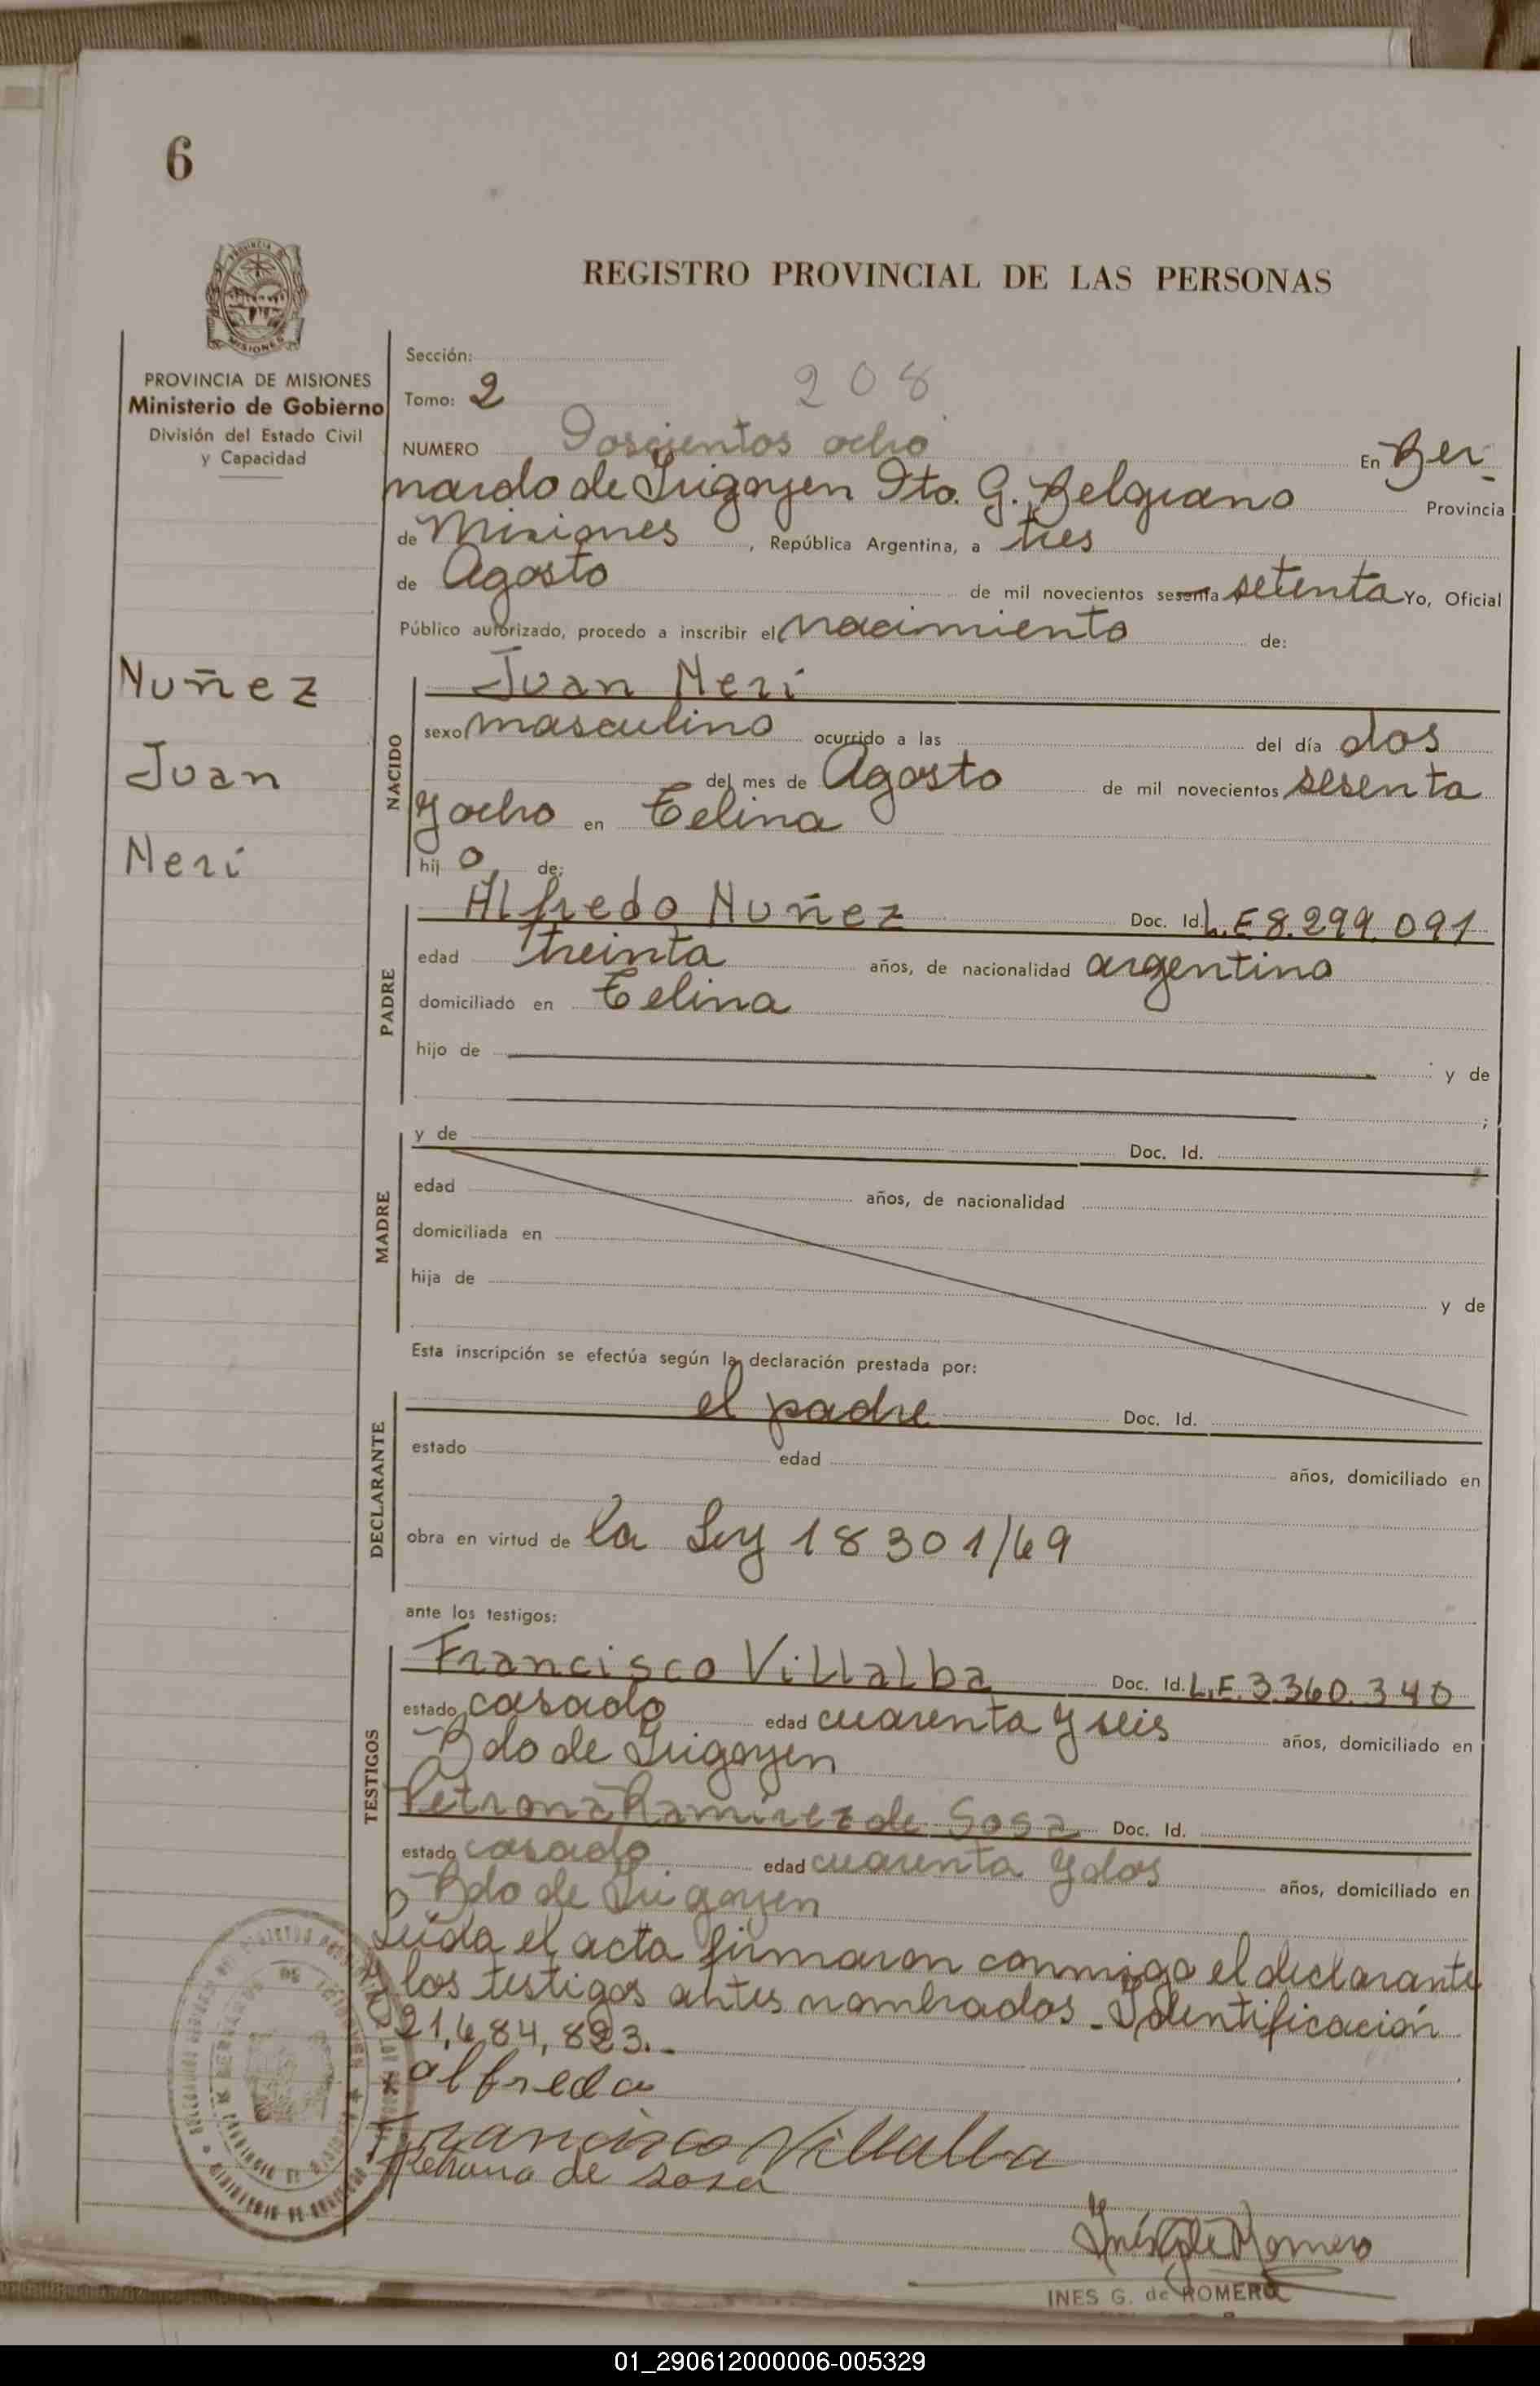 6
REGISTRO PROVINCIAL DE LAS PERSONAS
MISIONES
PROVINCIA DE MISIONES
Ministerio de Gobierno
División del Estado Civil
y Capacidad
Nuñez
Juan
Neri
Sección:
Tomo: 2 208
NUMERO Doscientos ocho En Ber-
nardo de Irigoyen Dto. G. Belgrano Provincia
de Misiones, República Argentina, a tres
de Agosto de mil novecientos sesenta setenta Yo, Oficial
Público autorizado, procedo a inscribir el nacimiento de:
NACIDO
Juan Neri
sexo masculino ocurrido a las del día dos
del mes de Agosto de mil novecientos sesenta
y ocho en Celina
hij o de:
PADRE
Alfredo Nuñez Doc. Id. L.E 8.299.091
edad treinta años, de nacionalidad argentina
domiciliado en Celina
hijo de y de
;
MADRE
y de Doc. Id.
edad años, de nacionalidad
domiciliada en
hija de y de
Esta inscripción se efectúa según la declaración prestada por:
DECLARANTE
el padre Doc. Id.
estado edad años, domiciliado en
obra en virtud de la Ley 18301/69
ante los testigos:
TESTIGOS
Francisco Villalba Doc. Id. L.E. 3.360.340
estado casado edad cuarenta y seis años, domiciliado en
Bdo de Irigoyen
Petrona Ramirez de Sosa Doc. Id.
estado casado edad cuarenta y dos años, domiciliado en
Bdo de Irigoyen
Leida el acta firmaron conmigo el declarante
y los testigos antes nombrados - Identificación
21,684,823.-
alfredo
Francisco Villalba
Petrona de sosa
Inés G de Romero
INES G. de ROMERO
01_290612000006-005329